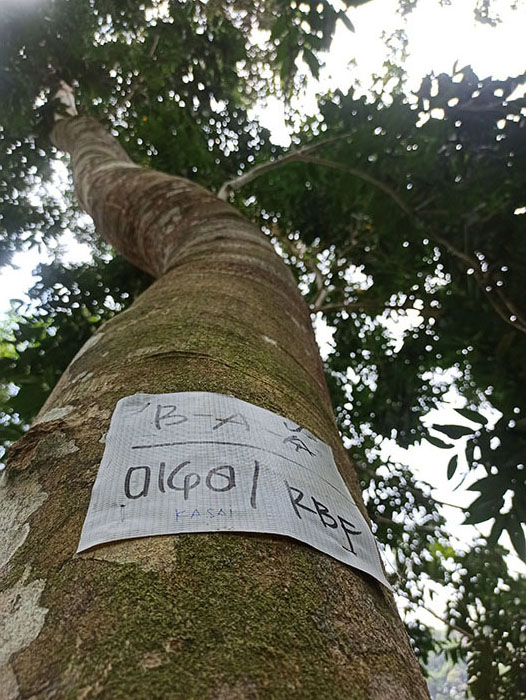 B-A
A
01601 RBF
KASAI